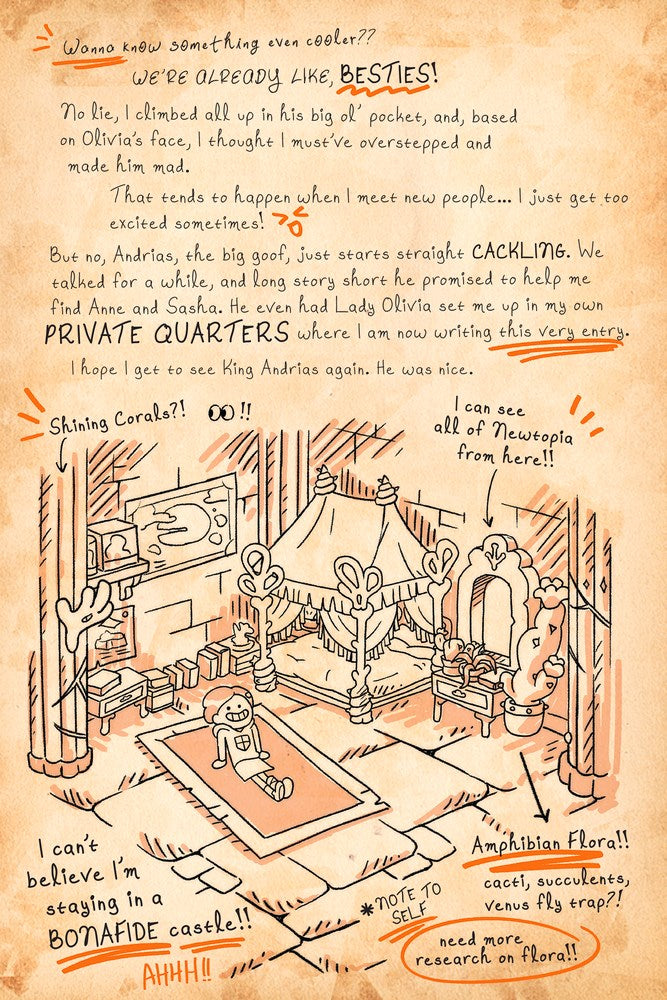 Wanna know something even cooler??
WE'RE ALREADY LIKE, BESTIES!
No lie, I climbed all up in his big ol' pocket, and, based
on Olivia's face, I thought I must've overstepped and
made him mad.
That tends to happen when I meet new people... I just get too
excited sometimes!
But no, Andrias, the big goof, just starts straight CACKLING. We
talked for a while, and long story short he promised to help me
find Anne and Sasha. He even had Lady Olivia set me up in my own
PRIVATE QUARTERS where I am now writing this very entry.
I hope I get to see King Andrias again. He was nice.
Shining Corals?! !!
I can see
all of Newtopia
from here!!
I can't
believe I'm
staying in a
BONAFIDE castle!!
AHHH!!
*NOTE TO
SELF
Amphibian Flora!!
cacti, succulents,
venus fly trap?!
need more
research on flora!!